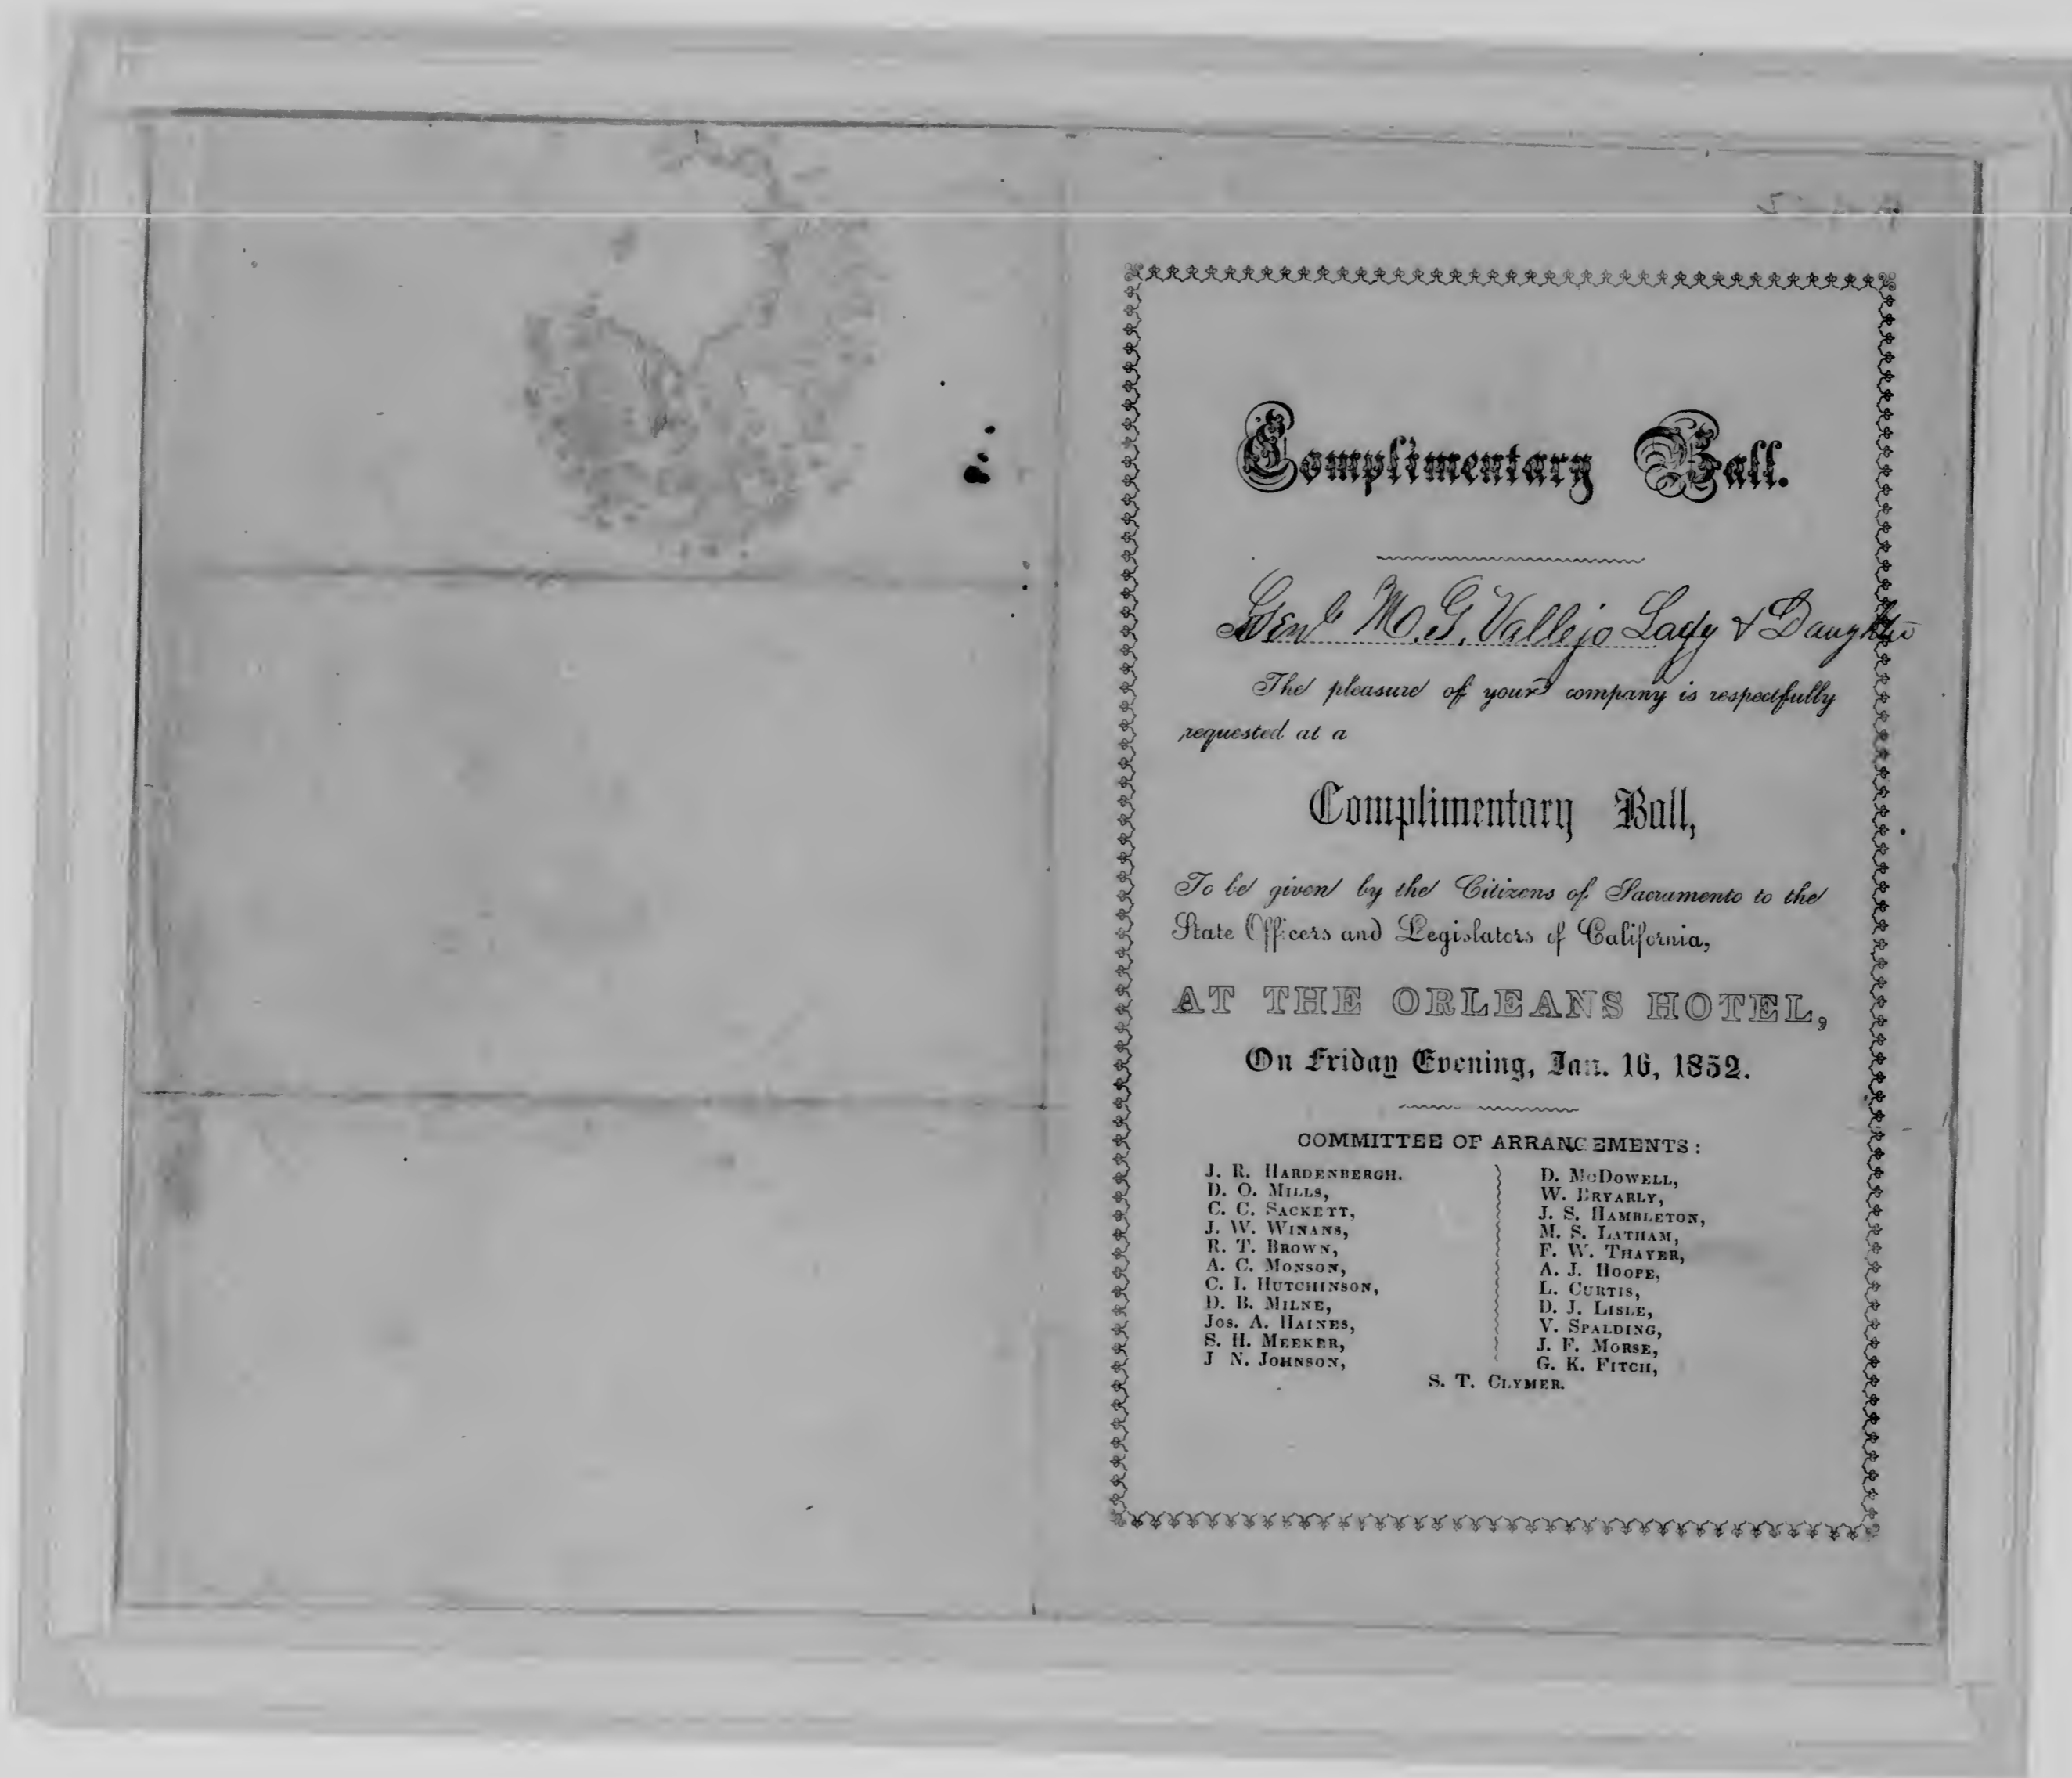 Complimentary Ball.
Genl M. G. Vallejo Lady & Daughter
The pleasure of your company is respectfully
requested at a
Complimentary Ball,
To be given by the Citizens of Sacramento to the
State Officers and Legislators of California,
AT THE ORLEANS HOTEL,
On Friday Evening, Jan. 16, 1852.
COMMITTEE OF ARRANGEMENTS:
J. R. HARDENBERGH.
D. O. MILLS,
C. C. SACKETT,
J. W. WINANS,
R. T. BROWN,
A. C. MONSON,
C. I. HUTCHINSON,
D. B. MILNE,
JOS. A. HAINES,
S. H. MEEKER,
J N. JOHNSON,
D. McDOWELL,
W. BRYARLY,
J. S. HAMBLETON,
M. S. LATHAM,
F. W. THAYER,
A. J. HOOPE,
L. CURTIS,
D. J. LISLE,
V. SPALDING,
J. F. MORSE,
G. K. FITCH,
S. T. CLYMER.